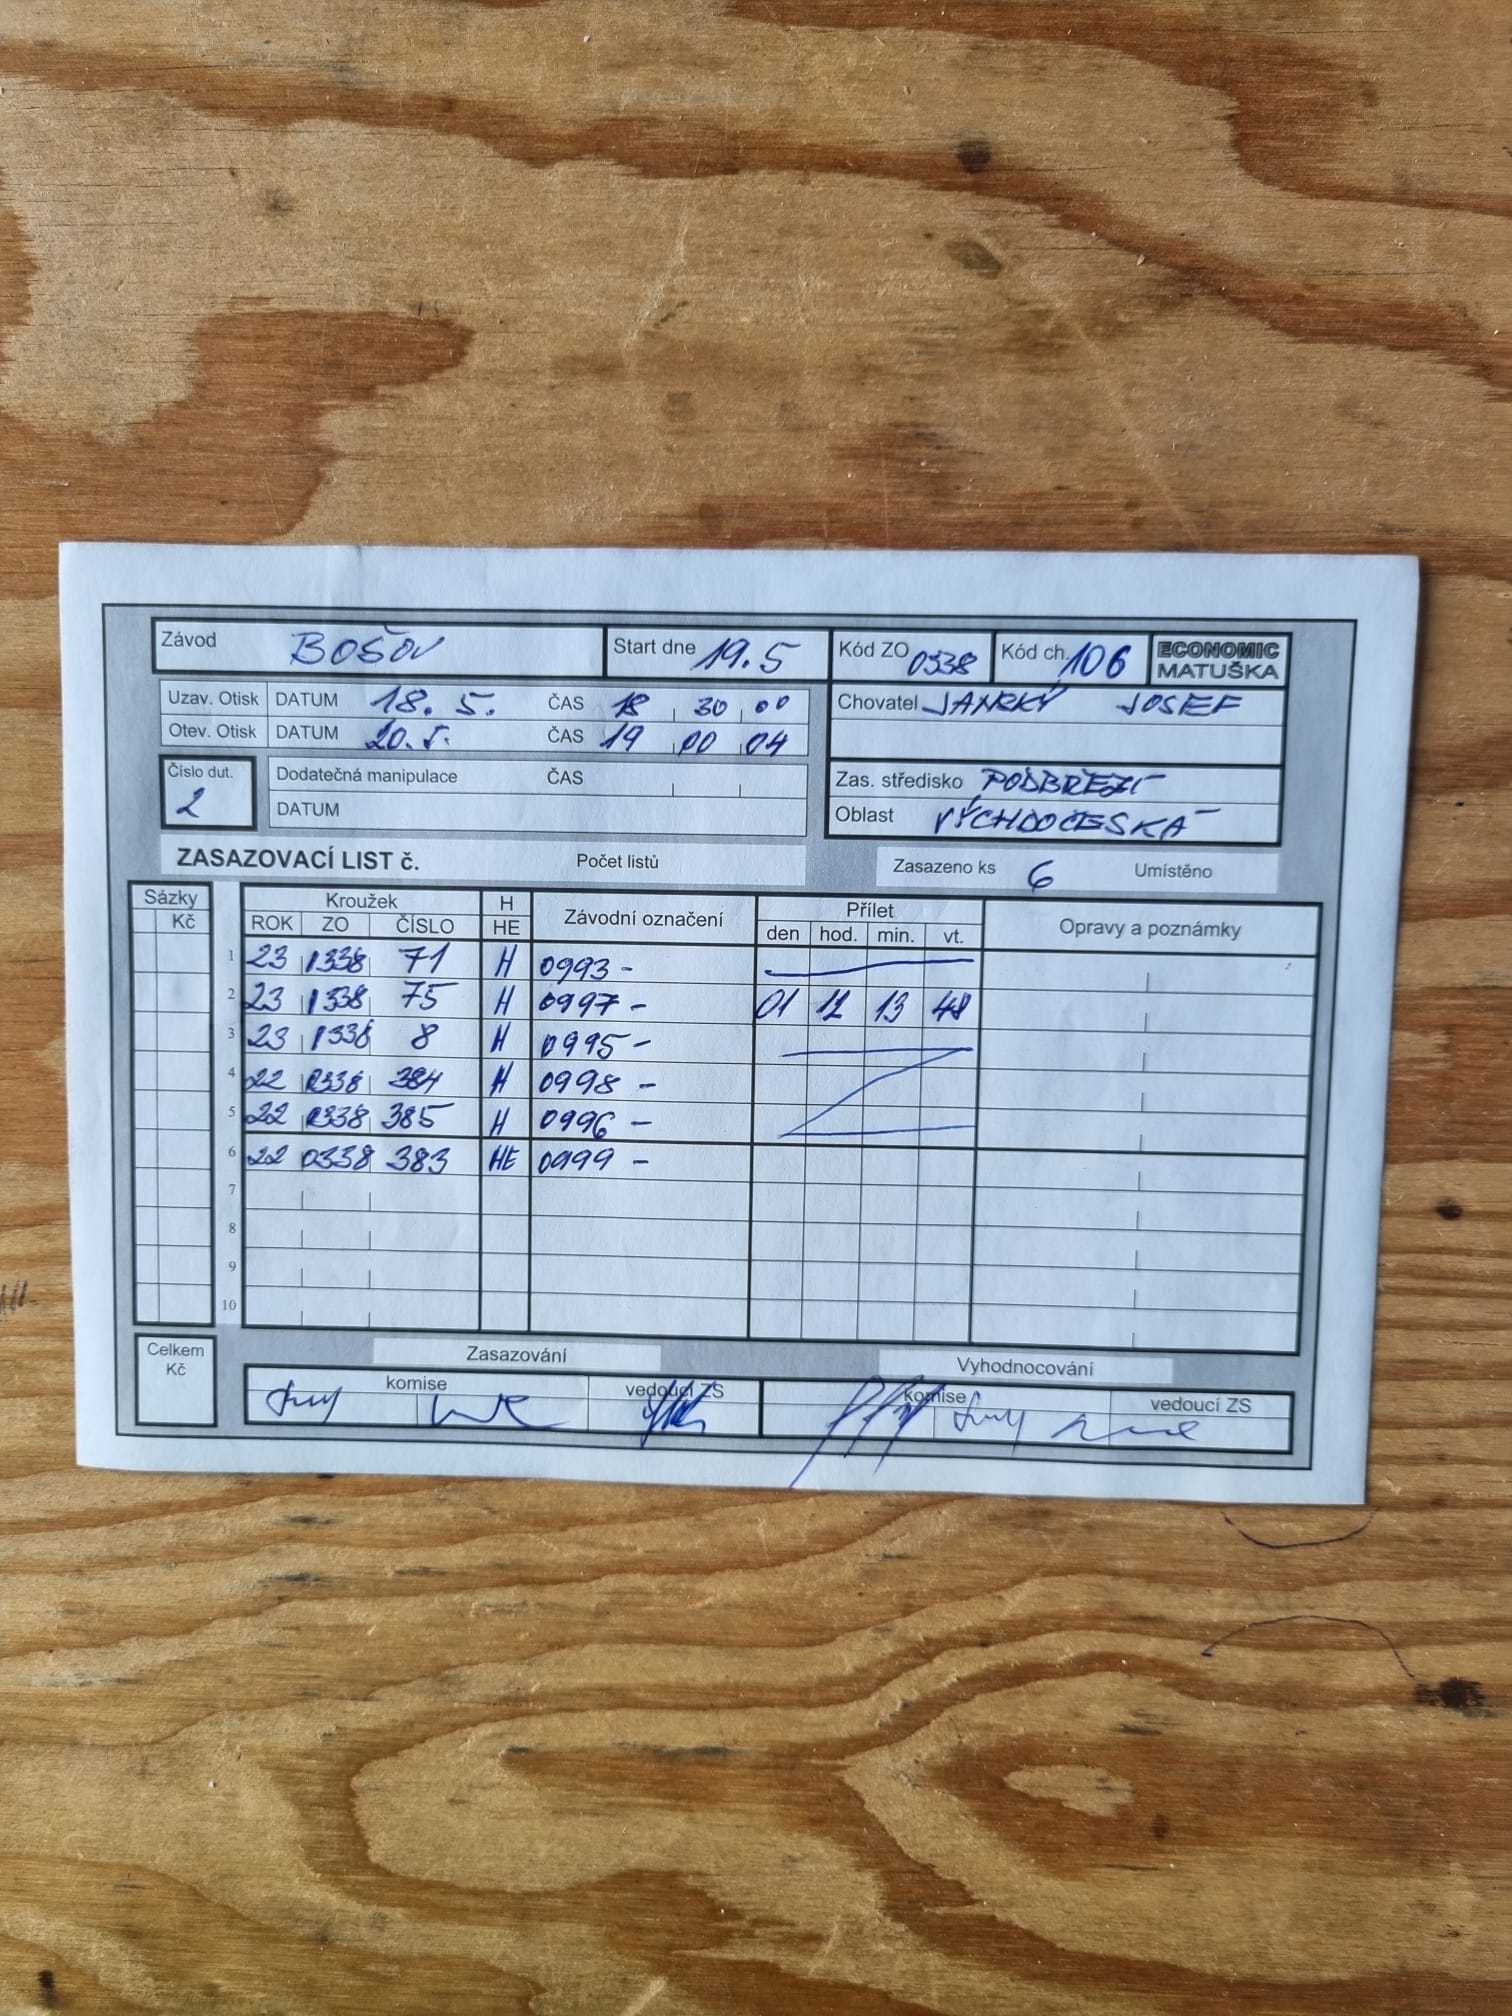 Závod BOŠOV Start dne 19.5 Kód ZO 0338 Kód ch. 106 ECONOMIC MATUŠKA
Uzav. Otisk DATUM 18. 5. ČAS 18 30 00 Chovatel JANSKÝ JOSEF
Otev. Otisk DATUM 20. 5. ČAS 19 00 04
Číslo dut. 2 Dodatečná manipulace ČAS Zas. středisko PODBŘEZÍ
DATUM Oblast VÝCHDOČESKÁ
ZASAZOVACÍ LIST č. Počet listů Zasazeno ks 6 Umístěno
Sázky Kroužek H Závodní označení Přílet Opravy a poznámky
Kč ROK ZO ČÍSLO HE den hod. min. vt.
1 23 1338 71 H 0993 -
2 23 1338 75 H 0997 - 01 12 13 48
3 23 1338 8 H 0995 -
4 22 0338 384 H 0998 -
5 22 0338 385 H 0996 -
6 22 0338 383 HE 0999 -
7
8
9
10
Celkem Kč Zasazování Vyhodnocování
komise vedoucí ZS komise vedoucí ZS